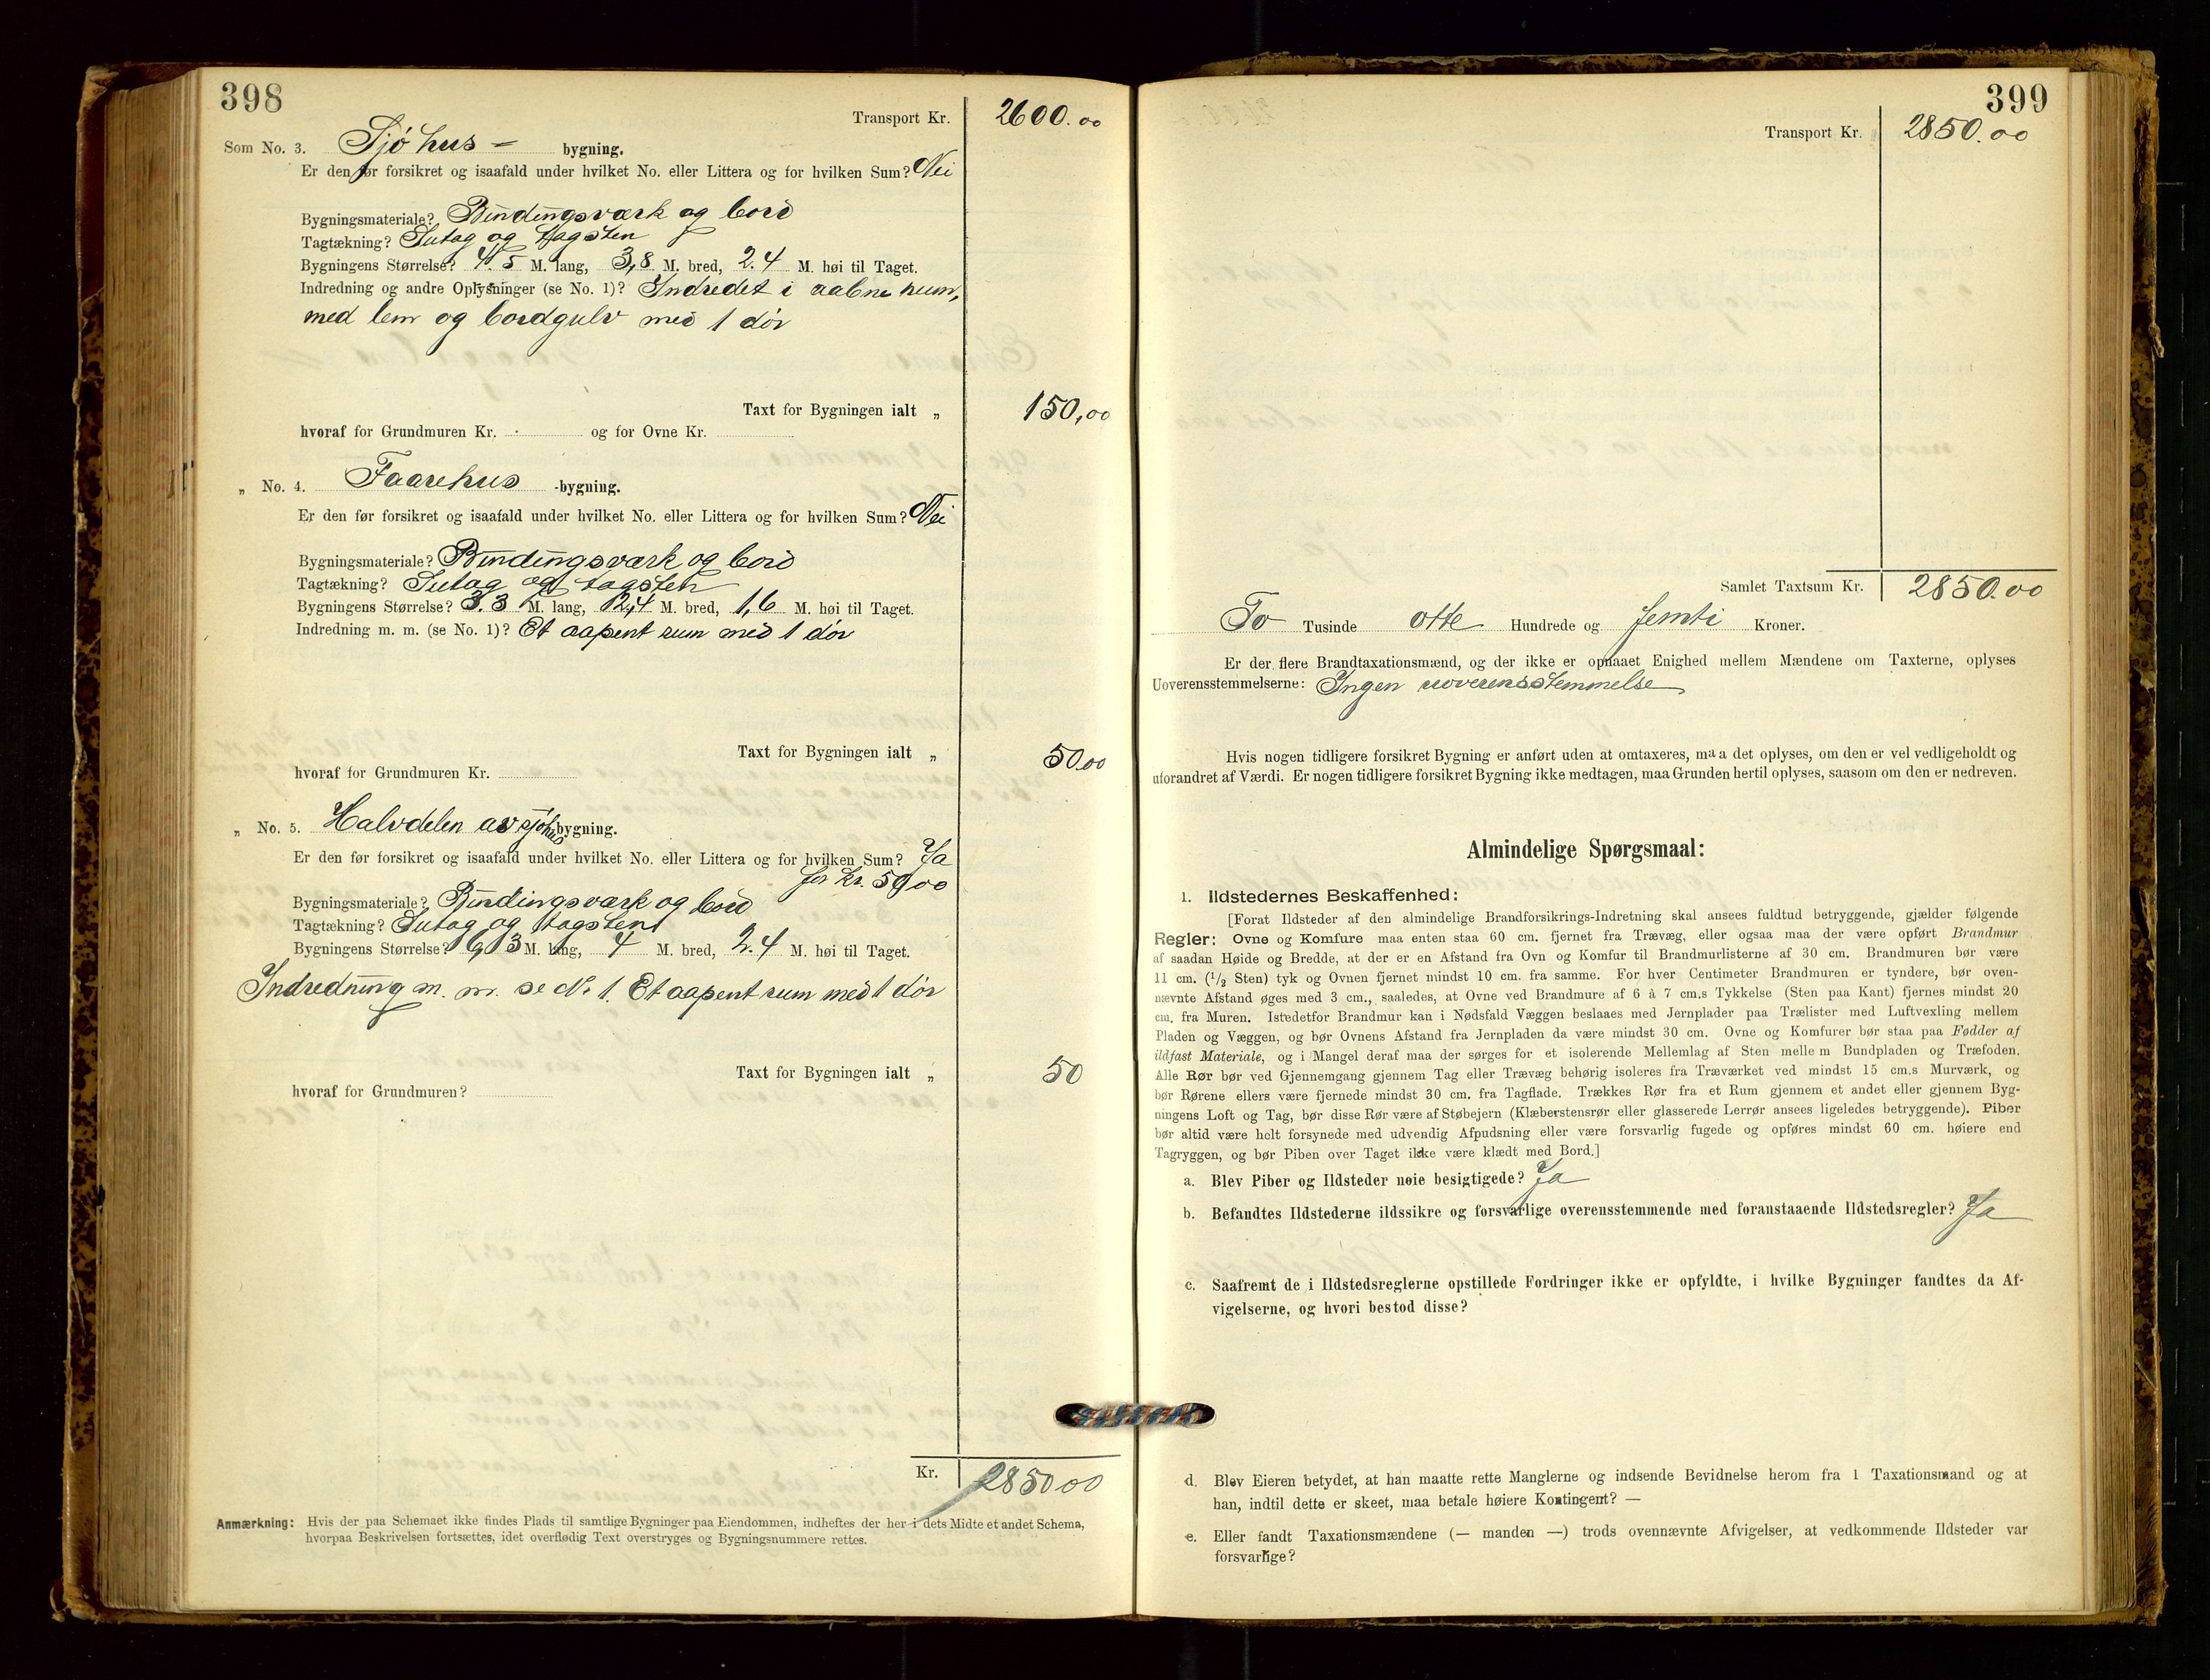 398
Transport Kr. 2600.00
Som No. 3. Sjöhus - bygning.
Er den før forsikret og isaafald under hvilket No. eller Littera og for hvilken Sum? Nei
Bygningsmateriale? Bindingsværk og bord
Tagtækning? Sutag og tagsten
Bygningens Størrelse? 4.5 M. lang, 3,8 M. bred, 2.4 M. høi til Taget.
Indredning og andre Oplysninger (se No. 1)? Indredet i aabne rum,
med lem og bordgulv med 1 dör
Taxt for Bygningen ialt „ 150,00
hvoraf for Grundmuren Kr. og for Ovne Kr.
„ No. 4. Faarehus -bygning.
Er den før forsikret og isaafald under hvilket No. eller Littera og for hvilken Sum? Nei
Bygningsmateriale? Bindingsværk og bord
Tagtækning? Sutag og tagsten
Bygningens Størrelse? 3.3 M. lang, 2,4 M. bred, 1,6 M. høi til Taget.
Indredning m. m. (se No. 1)? Et aapent rum med 1 dör
Taxt for Bygningen ialt „ 50.00
hvoraf for Grundmuren Kr.
„ No. 5. Halvdelen av sjöhus bygning.
Er den før forsikret og isaafald under hvilket No. eller Littera og for hvilken Sum? Ja
for kr. 50,00
Bygningsmateriale? Bindingsværk og bord
Tagtækning? Sutag og tagsten
Bygningens Størrelse? 6,3 M. lang, 4 M. bred, 2.4 M. høi til Taget.
Indredning m. m. se No 1. Et aapent rum med 1 dör
Taxt for Bygningen ialt „ 50
hvoraf for Grundmuren?
Kr. 2850 00
Anmærkning: Hvis der paa Schemaet ikke findes Plads til samtlige Bygninger paa Eiendommen, indheftes der her i dets Midte et andet Schema,
hvorpaa Beskrivelsen fortsættes, idet overflødig Text overstryges og Bygningsnummere rettes.
399
Transport Kr. 2850.00
Samlet Taxtsum Kr. 2850.00
To Tusinde otte Hundrede og femti Kroner.
Er der flere Brandtaxationsmænd, og der ikke er opnaaet Enighed mellem Mændene om Taxterne, oplyses
Uoverensstemmelserne: Ingen uoverensstemmelse
Hvis nogen tidligere forsikret Bygning er anført uden at omtaxeres, maa det oplyses, om den er vel vedligeholdt og
uforandret af Værdi. Er nogen tidligere forsikret Bygning ikke medtagen, maa Grunden hertil oplyses, saasom om den er nedreven.
Almindelige Spørgsmaal:
1. Ildstedernes Beskaffenhed:
[Forat Ildsteder af den almindelige Brandforsikrings-Indretning skal ansees fuldtud betryggende, gjælder følgende
Regler: Ovne og Komfure maa enten staa 60 cm. fjernet fra Trævæg, eller ogsaa maa der være opført Brandmur
af saadan Høide og Bredde, at der er en Afstand fra Ovn og Komfur til Brandmurlisterne af 30 cm. Brandmuren bør være
11 cm. (1/2 Sten) tyk og Ovnen fjernet mindst 10 cm. fra samme. For hver Centimeter Brandmuren er tyndere, bør oven-
nævnte Afstand øges med 3 cm., saaledes, at Ovne ved Brandmure af 6 à 7 cm.s Tykkelse (Sten paa Kant) fjernes mindst 20
cm. fra Muren. Istedetfor Brandmur kan i Nødsfald Væggen beslaaes med Jernplader paa Trælister med Luftvexling mellem
Pladen og Væggen, og bør Ovnens Afstand fra Jernpladen da være mindst 30 cm. Ovne og Komfurer bør staa paa Fødder af
ildfast Materiale, og i Mangel deraf maa der sørges for et isolerende Mellemlag af Sten mellem Bundpladen og Træfoden.
Alle Rør bør ved Gjennemgang gjennem Tag eller Trævæg behørig isoleres fra Træværket ved mindst 15 cm.s Murværk, og
bør Rørene ellers være fjernede mindst 30 cm. fra Tagflade. Trækkes Rør fra et Rum gjennem et andet eller gjennem Byg-
ningens Loft og Tag, bør disse Rør være af Støbejern (Klæberstensrør eller glasserede Lerrør ansees ligeledes betryggende). Piber
bør altid være helt forsynede med udvendig Afpudsning eller være forsvarlig fugede og opføres mindst 60 cm. høiere end
Tagryggen, og bør Piben over Taget ikke være klædt med Bord.]
a. Blev Piber og Ildsteder nøie besigtigede? Ja
b. Befandtes Ildstederne ildssikre og forsvarlige overensstemmende med foranstaaende Ildstedsregler? Ja
c. Saafremt de i Ildstedsreglerne opstillede Fordringer ikke er opfyldte, i hvilke Bygninger fandtes da Af-
vigelserne, og hvori bestod disse?
d. Blev Eieren betydet, at han maatte rette Manglerne og indsende Bevidnelse herom fra 1 Taxationsmand og at
han, indtil dette er skeet, maa betale høiere Kontingent? —
e. Eller fandt Taxationsmændene (— manden —) trods ovennævnte Afvigelser, at vedkommende Ildsteder var
forsvarlige?